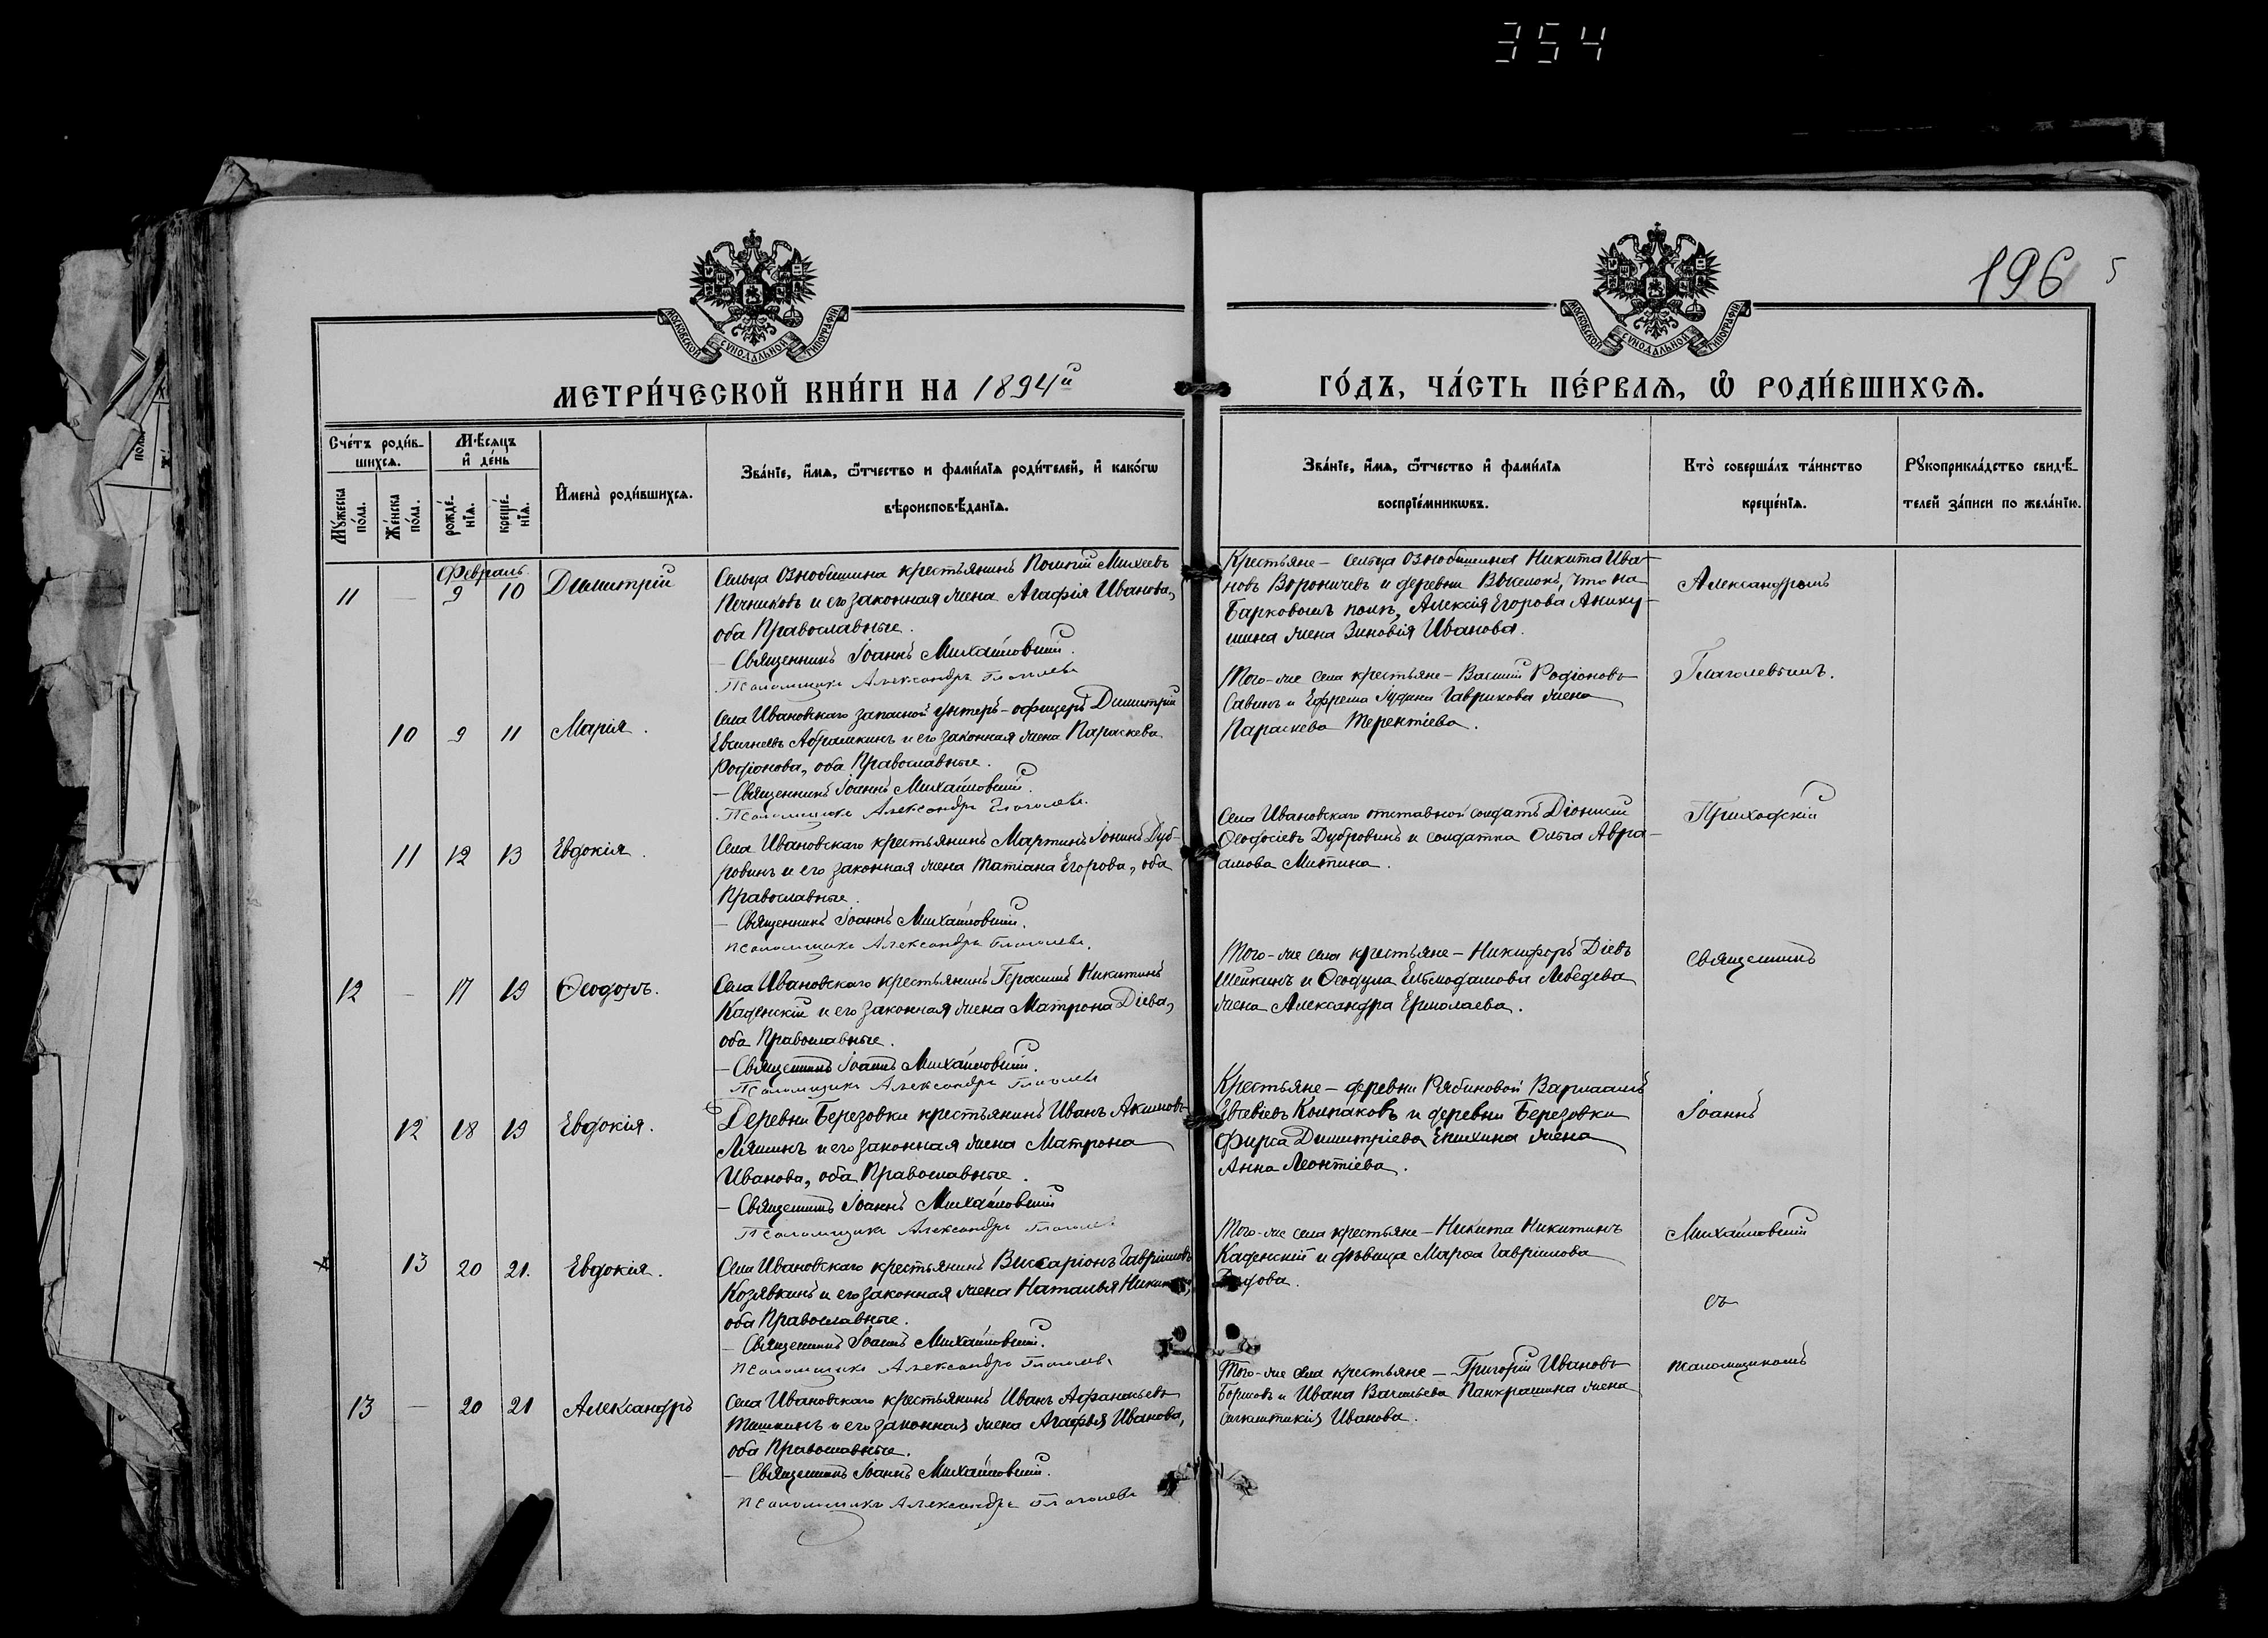 354
196 5
МОСКОВСКОЙ СУНОДАЛЬНОЙ ТИПОГРАФІИ
МОСКОВСКОЙ СУНОДАЛЬНОЙ ТИПОГРАФІИ
МЕТРИ́ЧЕСКОЙ КНИ́ГИ НА 1894й
ГО́ДЪ, ЧА́СТЬ ПЕ́РВАѦ, Ѡ҆ РОДИ́ВШИХСѦ.
Сче́тъ роди́в-
шихсѧ.
Мѣ́сѧцъ
и҆ де́нь
Мꙋ́жеска по́ла.
Же́нска по́ла.
рожде́-
нїѧ.
креще́-
нїѧ.
И҆мена̀ роди́вшихсѧ.
Зва́нїе, и҆́мѧ, ѻ҆́тчество и фами́лїѧ роди́телей, и҆ како́гѡ
вѣроисповѣ́данїѧ.
Зва́нїе, и҆́мѧ, ѻ҆́тчество и҆ фами́лїѧ
воспрїе́мникѡвъ.
Кто̀ соверша́лъ та́инство
креще́нїѧ.
Рꙋкоприкла́дство свидѣ́-
телей за́писи по жела́нїю.
Февраль
11 — 9 10 Димитрій
Сельца Ознобишина крестьянинъ Михеевъ
Печниковъ и его законная жена Агафія Иванова,
оба Православные.
— Священникъ Іоаннъ Михайловскій.
Псаломщикъ Александръ Глаголевъ
Крестьяне — сельца Ознобишина Никита Ива-
новъ Вороничевъ и деревни Выселокъ, что на
Барковомъ полѣ, Алексія Егорова Анику-
шина жена Зиновія Иванова.
Александромъ
10 9 11 Марія.
Села Ивановскаго запасной унтеръ-офицеръ Димитрій
Евсигнеевъ Абрамкинъ и его законная жена Параскева
Родіонова, оба Православные.
— Священникъ Іоаннъ Михайловскій.
Псаломщикъ Александръ Глаголевъ.
Того-же села крестьяне — Василій Родіоновъ
Савинъ и Ефрема Іудина Гаврикова жена
Параскева Терентіева.
Глаголевымъ.
11 12 13 Евдокія.
Села Ивановскаго крестьянинъ Мартинъ Іонинъ Дуб-
ровинъ и его законная жена Татіана Егорова, оба
Православные.
— Священникъ Іоаннъ Михайловскій.
Псаломщикъ Александръ Глаголевъ.
Села Ивановскаго отставной солдатъ Діонисій
Ѳеодосіевъ Дубровинъ и солдатка Ольга Авра-
амова Митина.
Приходскій
12 — 17 19 Ѳеодоръ.
Села Ивановскаго крестьянинъ Герасимъ Никитинъ
Каденскій и его законная жена Матрона Діева,
оба Православные.
— Священникъ Іоаннъ Михайловскій.
Псаломщикъ Александръ Глаголевъ
Того-же села крестьяне — Никифоръ Діевъ
Шейкинъ и Ѳеодула Лебедева
жена Александра Ермолаева.
Священникъ
12 18 19 Евдокія.
Деревни Березовки крестьянинъ Иванъ Акимовъ
Ляминъ и его законная жена Матрона
Иванова, оба Православные.
— Священникъ Іоаннъ Михайловскій
Псаломщикъ Александръ Глаголевъ
Крестьяне — деревни Рябиновой Варлаамъ
Колпаковъ и деревни Березовки
Фирса Димитріева Епихина жена
Анна Леонтіева.
Іоаннъ
13 20 21. Евдокія.
Села Ивановскаго крестьянинъ Виссаріонъ Гавріиловъ
Козявкинъ и его законная жена Наталья
оба Православные.
— Священникъ Іоаннъ Михайловскій.
Псаломщикъ Александръ Глаголевъ
Того-же села крестьяне — Никита Никитинъ
Каденскій и дѣвица Марѳа Гавріилова
Михайловскій
съ
13 — 20 21 Александръ
Села Ивановскаго крестьянинъ Иванъ Афанасьевъ
Тяшкинъ и его законная жена Агафья Иванова,
оба Православные.
— Священникъ Іоаннъ Михайловскій.
Псаломщикъ Александръ Глаголевъ
Того-же села крестьяне — Григорій Ивановъ
Борисовъ и Ивана Васильева Панкрашина жена
Синклитикія Иванова.
псаломщикомъ